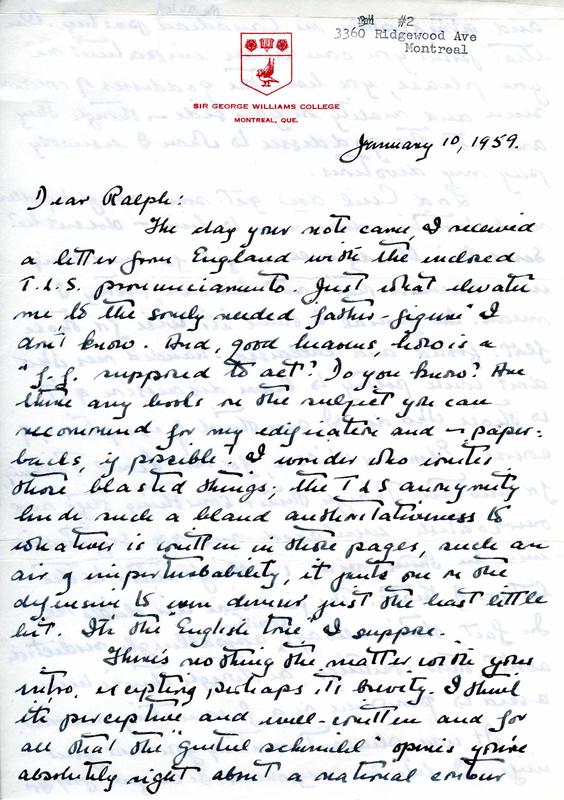 #2
3360 Ridgewood Ave
Montreal
SIR GEORGE WILLIAMS COLLEGE
MONTREAL, QUE.
January 10, 1959.
Dear Ralph:
The day your note came, I received
a letter from England with the enclosed
T.L.S. pronunciamento. Just what elevates
me to the "sorely needed father-figure" I
don't know. And, good heavens, how is a
"f.f." supposed to act? Do you know? Are
there any books on the subject you can
recommend for my edification and – paper-
backs, if possible? I wonder who writes
those blasted things; the TLS anonymity
lends such a bland authoritativeness to
whatever is written in those pages, such an
air of imperturbability, it puts one on the
defensive to even demur just the least little
bit. It's the "English tone", I suppose.
There's nothing the matter with your
intro, excepting perhaps its brevity. I think
it's perceptive and well-written and for
all that the "gisting" opens you're
absolutely right about a national contour